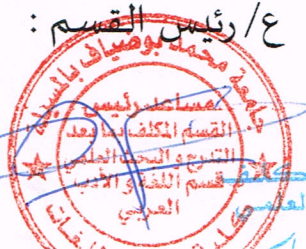 ع/ رئيس القسم :
جامعة محمد بوضياف بالمسيلة
مساعد رئيس
القسم المكلف بما بعد
التدرج و البحث العلمي
قسم اللغة و الأدب
العربي